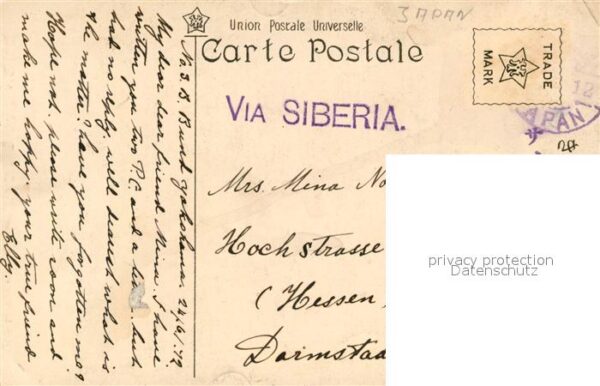 JAPAN
Union Postale Universelle
Carte Postale
TRADE
MARK
12
APAN
VIA SIBERIA.
Mrs. Mina No
Hochstrasse
(Hessen)
Darmstad
privacy protection
Datenschutz
No 3. B. Bund yokohama 24/6/12
My dear dear friend Mina. I have
written you two P.C. and a but
had no reply, well dearest what is
the matter? have you forgotten me?
Hoope not. please write soon and
make me happy. your true friend
Elly.